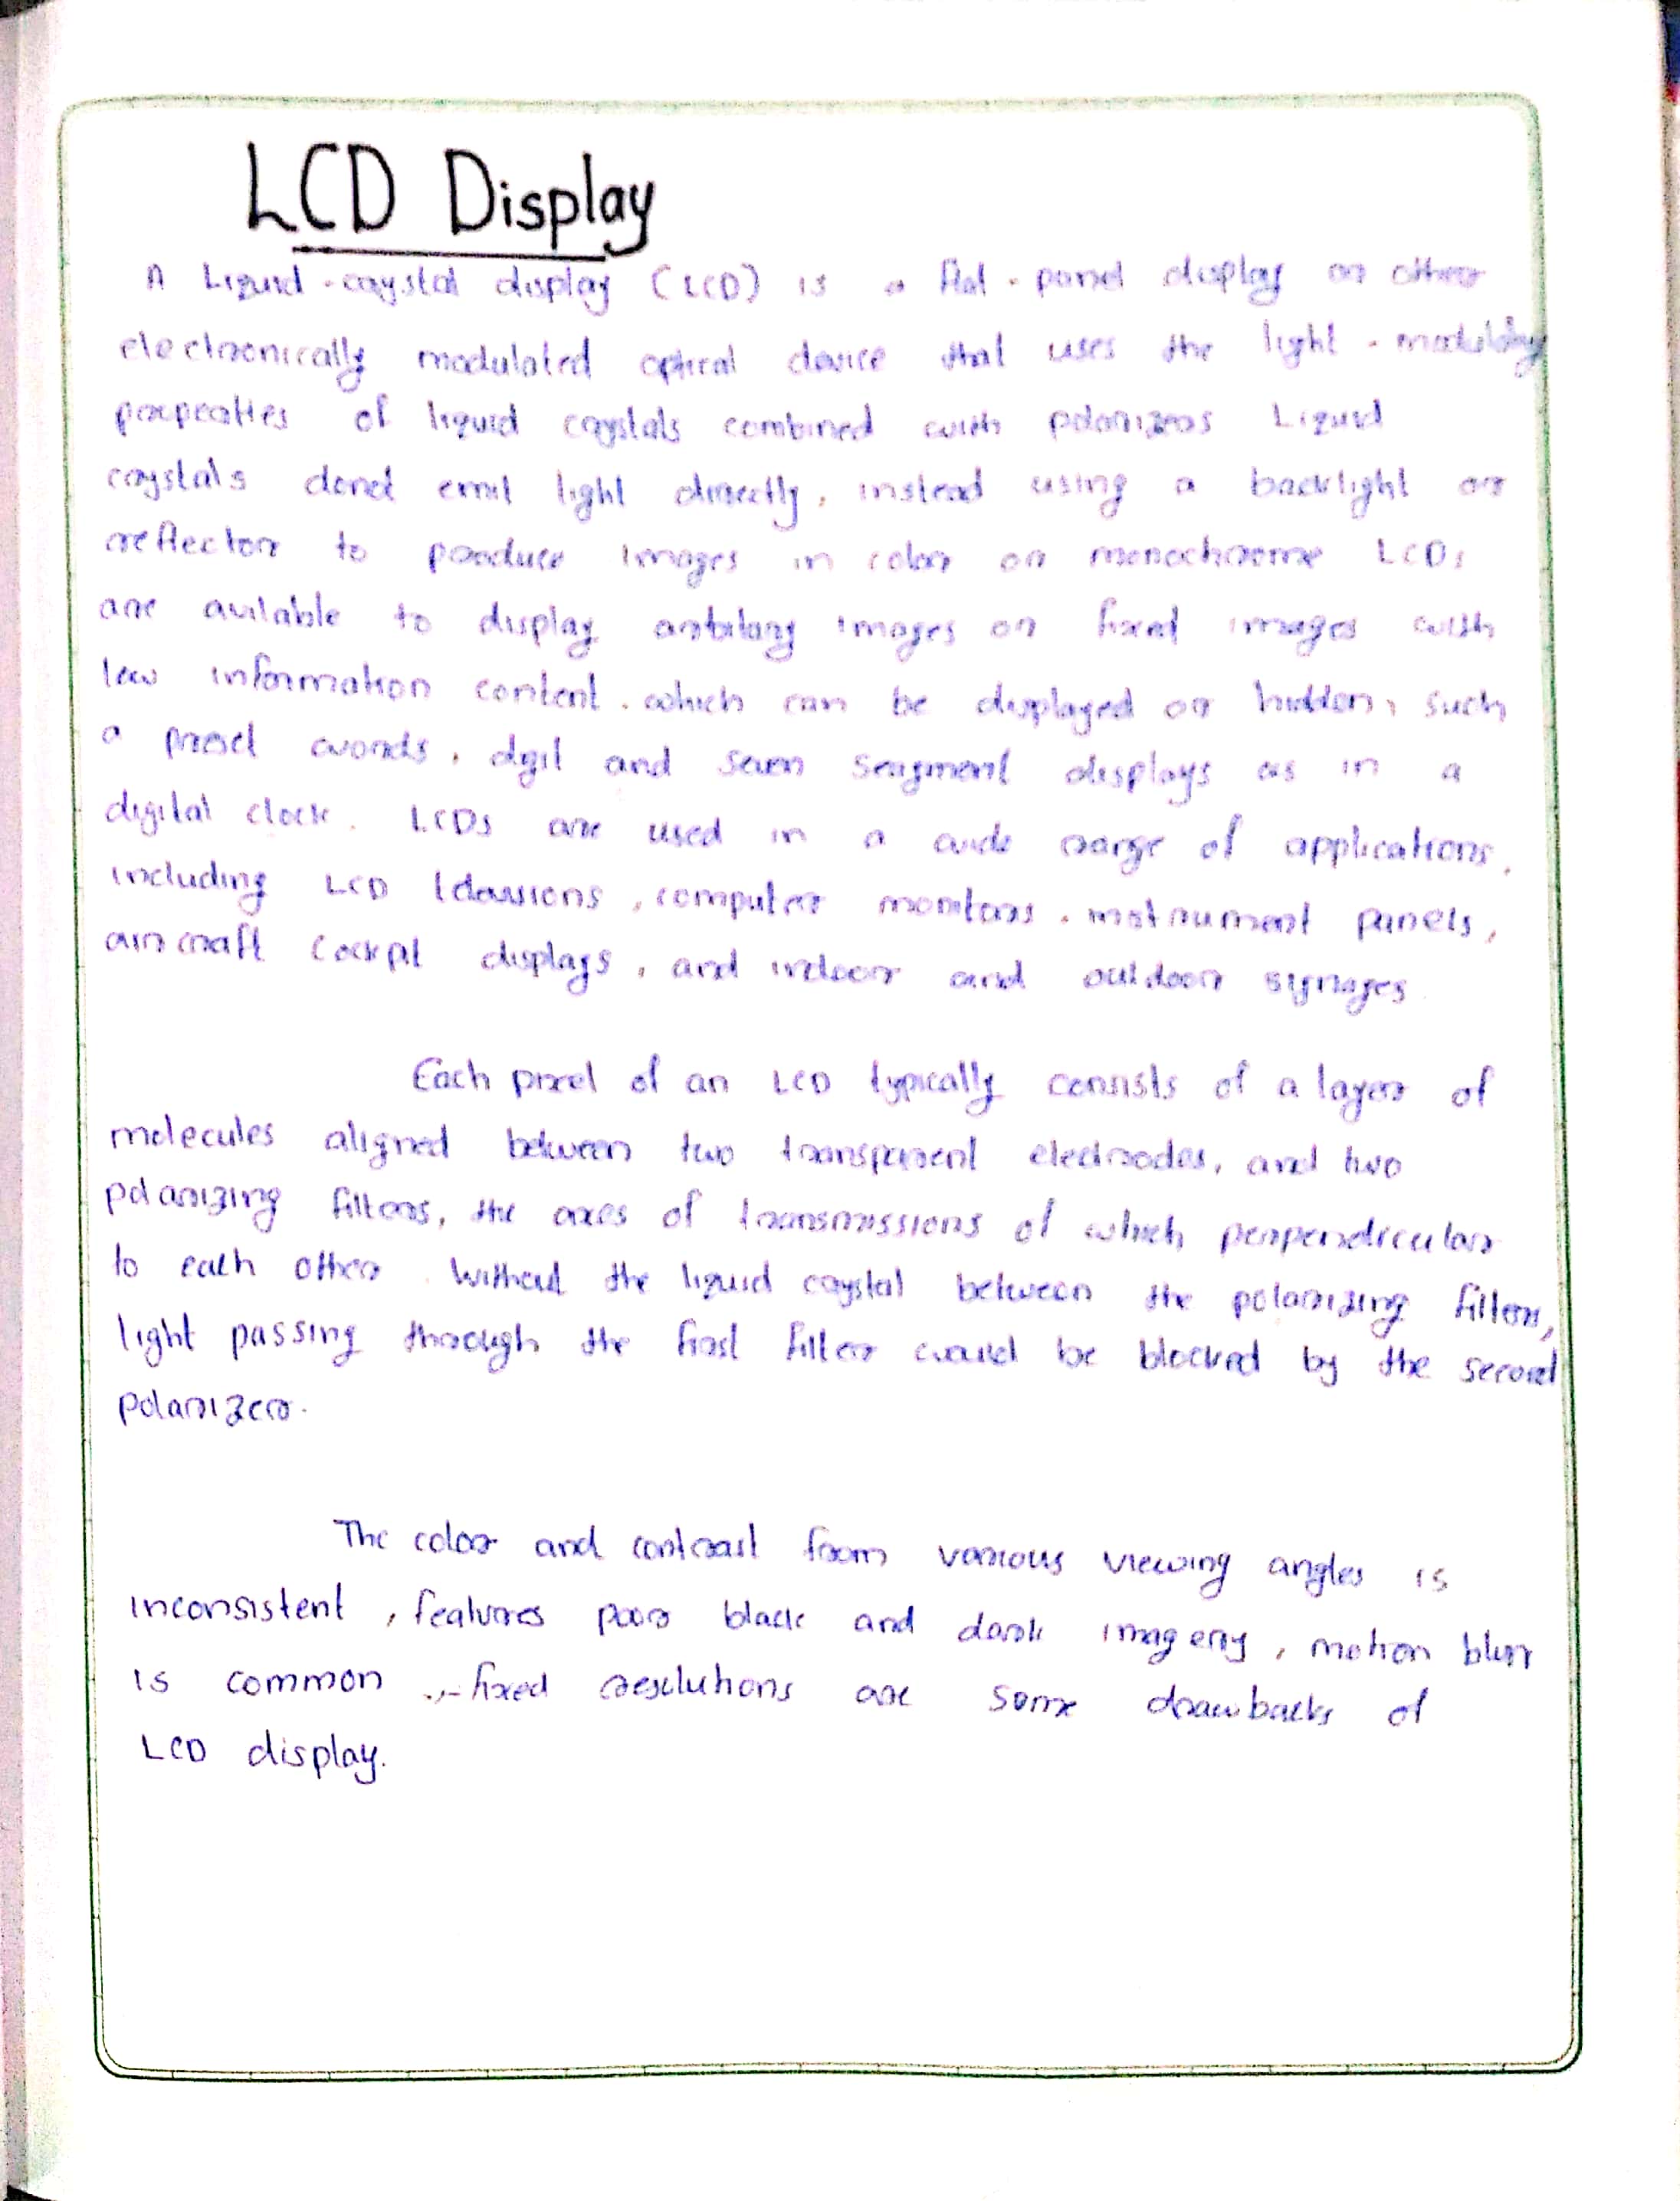 LCD Display
A Liquid-crystal display (LCD) is a flat-panel display or other
electronically modulated optical device that uses the light-modulating
properties of liquid crystals combined with polarizers Liquid
crystals donot emit light directly, instead using a backlight or
reflector to produce images in color or monochrome LCDs
are avilable to display images or fixed images with
low information content. which can be displayed or hidden, such
a words, digit and seven seagment displays as in a
digital clock. LCDs are used in a wide range of applications,
including LCD televisions, computer monitors, instrument panels,
aircraft cockpit displays, and indoor and outdoor signages
Each pixel of an LCD typically consists of a layer of
molecules aligned between two transparent electrodes, and two
polarizing filters, the axes of transmissions of which perpendicular
to each other. Without the liquid crystal between the polarizing filters,
light passing through the first filter would be blocked by the second
polarizer.
The color and contrast from various viewing angles is
inconsistent, features poor black and dark imagery, motion blur
is common, fixed resolutions are some drawbacks of
LCD display.